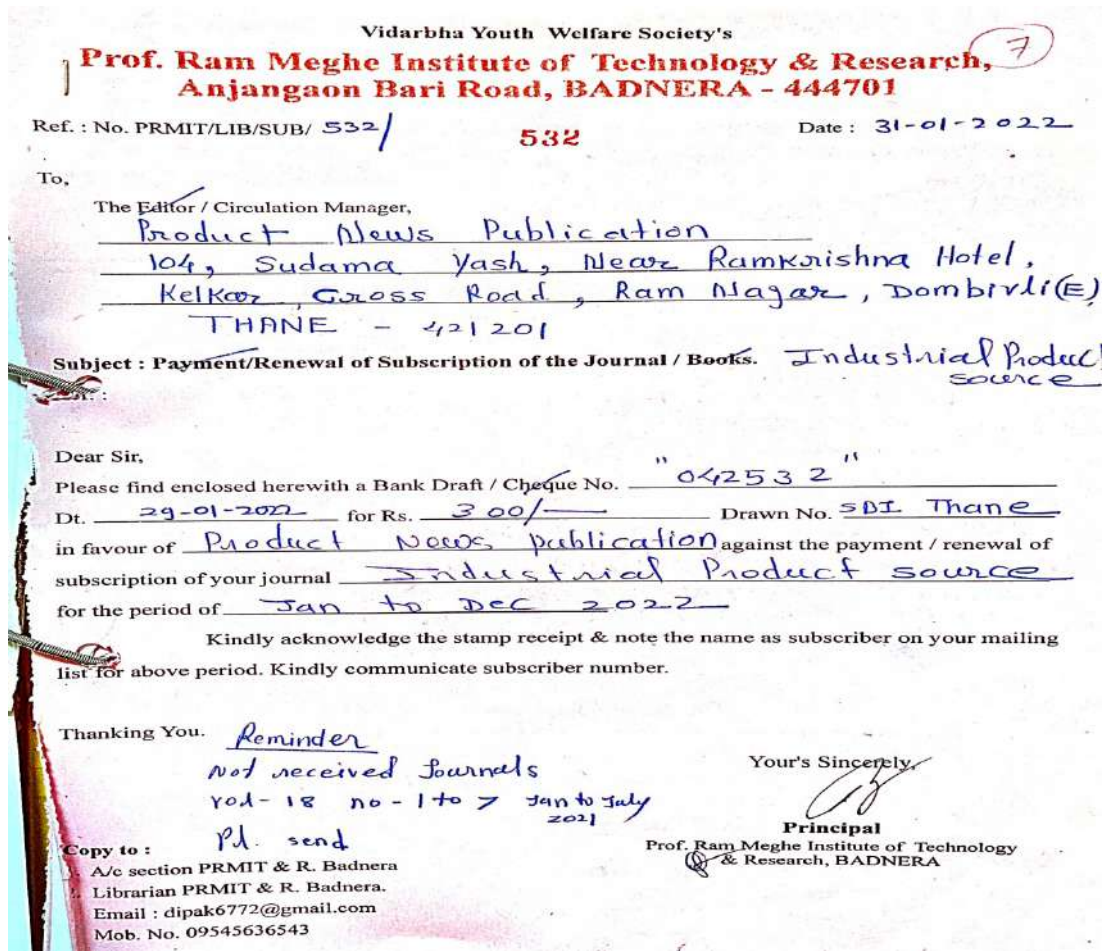 Vidarbha Youth Welfare Society's
7
Prof. Ram Meghe Institute of Technology & Research,
Anjangaon Bari Road, BADNERA - 444701
Ref. : No. PRMIT/LIB/SUB/ 532/
532
Date : 31-01-2022
To,
The Editor / Circulation Manager,
Product News Publication
104, Sudama Yash, Near Ramkrishna Hotel,
Kelkar, Cross Road, Ram Nagar, Dombivli(E)
THANE - 421201
Subject : Payment/Renewal of Subscription of the Journal / Books. Industrial Product
source
Dear Sir,
Please find enclosed herewith a Bank Draft / Cheque No. "042532"
Dt. 29-01-2022 for Rs. 300/- Drawn No. SBI Thane
in favour of Product News publication against the payment / renewal of
subscription of your journal Industrial Product source
for the period of Jan to Dec 2022
Kindly acknowledge the stamp receipt & note the name as subscriber on your mailing
list for above period. Kindly communicate subscriber number.
Thanking You.
Reminder
Not received Journals
vol-18 no-1 to 7 Jan to July
2021
Pl. send
Your's Sincerely,
Principal
Prof. Ram Meghe Institute of Technology
& Research, BADNERA
Copy to :
A/c section PRMIT & R. Badnera
Librarian PRMIT & R. Badnera.
Email : dipak6772@gmail.com
Mob. No. 09545636543